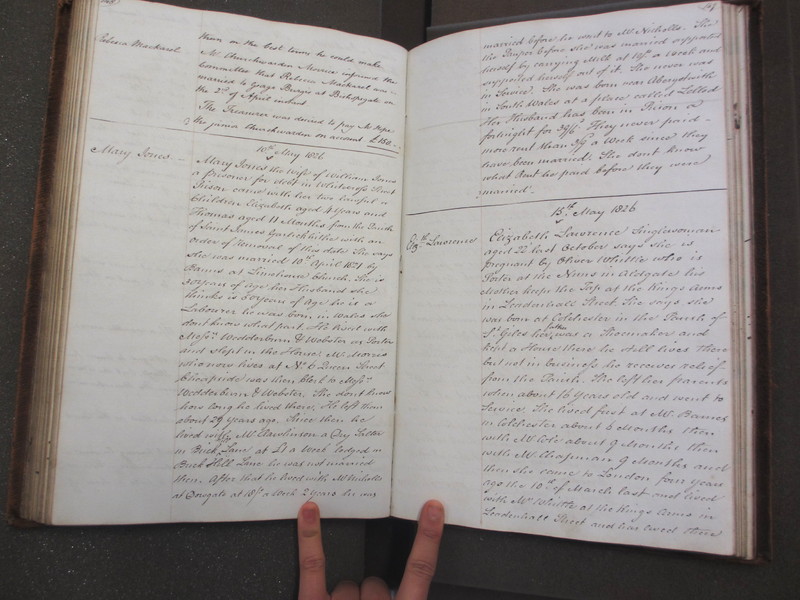 them on the best terms he could make
Rebecca Mackarel
Mr Churchwarden Morris informed the
Committee that Rebecca Mackarel was
married to George Burgis at Bishopsgate on
the 2nd of April instant
The Treasurer was desired to pay Mr Pope
the junior Churchwarden on account £150
10th May 1826
Mary Jones
Mary Jones the Wife of William Jones
a prisoner for debt in Whitecross Street
Prison came with her two lawful
Children Elizabeth aged 4 Years and
Thomas aged 11 Months from the Parish
of Saint James Garlickhithe with an
order of removal of this date She says
she was married 10th April 1821 by
Banns at Limehouse Church. She is
30 Years of age her Husband she
thinks is 50 Years of Age he is a
Labourer he was born in Wales she
dont know what part. He lived with
Messrs Wedderburn & Webster as Porter
and slept in the House. Mr Morris
who now lives at No 6 Queen Street
Cheapside was then Clerk to Messrs
Wedderburn & Webster. She dont know
how long he lived there, He left them
about 24 Years ago. Since then he
lived with Mr Rawlinson a Dry Salter
in Bush Lane at £1 a Week lodged in
Bush Hill Lane he was not married
then. After that he lived with Mr Nicholls
at Dowgate at 18/ a Week 2 Years he was
married before he went to Mr Nicholls. She
the Pauper before she was married supported
herself by carrying Milk at 10/ a week and
supported herself out of it. She never was
in Service. She was born near Aberystwith
in South Wales at a place called Lelled
Her Husband has been in Prison a
fortnight for 39/6. They never paid
more rent than 3/9 a Week since they
have been married. She dont know
what Rent he paid before they were
married
15th May 1826
Elizth Lawrence
Elizabeth Lawrence Singlewoman
aged 22 last October says she is
pregnant by Oliver Whittle who is
Porter at the Nuns in Aldgate his
Mother keeps the Tap at the Kings Arms
in Leadenhall Street She says she
was born at Colchester in the Parish of
St Giles her father was a Shoemaker and
kept a House there he still lives there
but not in business he receives relief
from the Parish. She left her parents
when about 16 Years old and went to
Service. She lived first at Mr Barnes
in Colchester about 6 Months then
with Mr Cole about 9 Months then
with Mr Chapman 9 Months and
then she came to London four Years
ago the 10th of March last and lived
with Mrs Whittle at the Kings Arms in
Leadenhall Street and has lived there